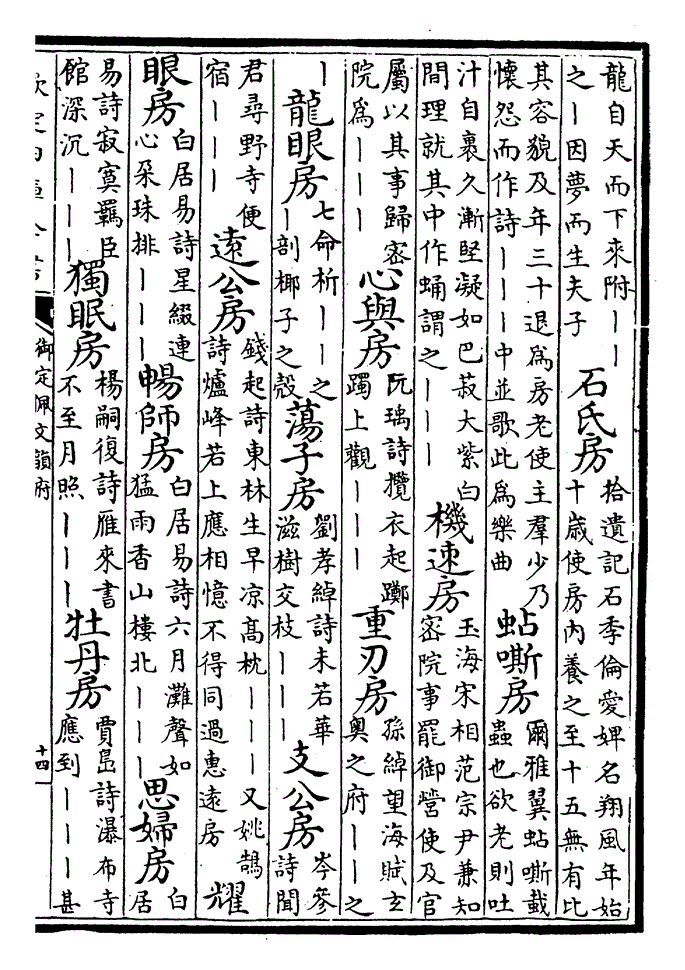 龍自天而下來附｜｜
之｜因夢而生夫子
石氏房
拾遺記石季倫愛婢名翔風年始
十歲使房內養之至十五無有比
其容貌及年三十退為房老使主羣少乃
懷怨而作詩｜｜｜中並歌此為樂曲
蛄嘶房
爾雅翼蛄嘶載
蟲也欲老則吐
汁自裹久漸堅凝如巴菽大紫白
間理就其中作蛹謂之｜｜｜
機速房
玉海宋相范宗尹兼知
密院事罷御營使及官
屬以其事歸密
院為｜｜｜
心與房
阮瑀詩攬衣起躑
躅上觀｜｜｜
重刃房
孫綽望海賦玄
奥之府｜｜之
｜
龍眼房
七命析｜｜之
｜剖椰子之殼
蕩子房
劉孝綽詩未若華
滋樹交枝｜｜｜
支公房
岑參
詩聞
君尋野寺便
宿｜｜｜
遠公房
錢起詩東林生早凉高枕｜｜｜又姚鵠
詩爐峰若上應相憶不得同過惠遠房
耀
眼房
白居易詩星綴連
心朶珠排｜｜｜
暢師房
白居易詩六月灘聲如
猛雨香山樓北｜｜｜
思婦房
白
居
易詩寂寞羈臣
館深沉｜｜｜
獨眠房
楊嗣復詩雁來書
不至月照｜｜｜
牡丹房
賈島詩瀑布寺
應到｜｜｜甚
欽定四庫全書
御定佩文韻府
十四